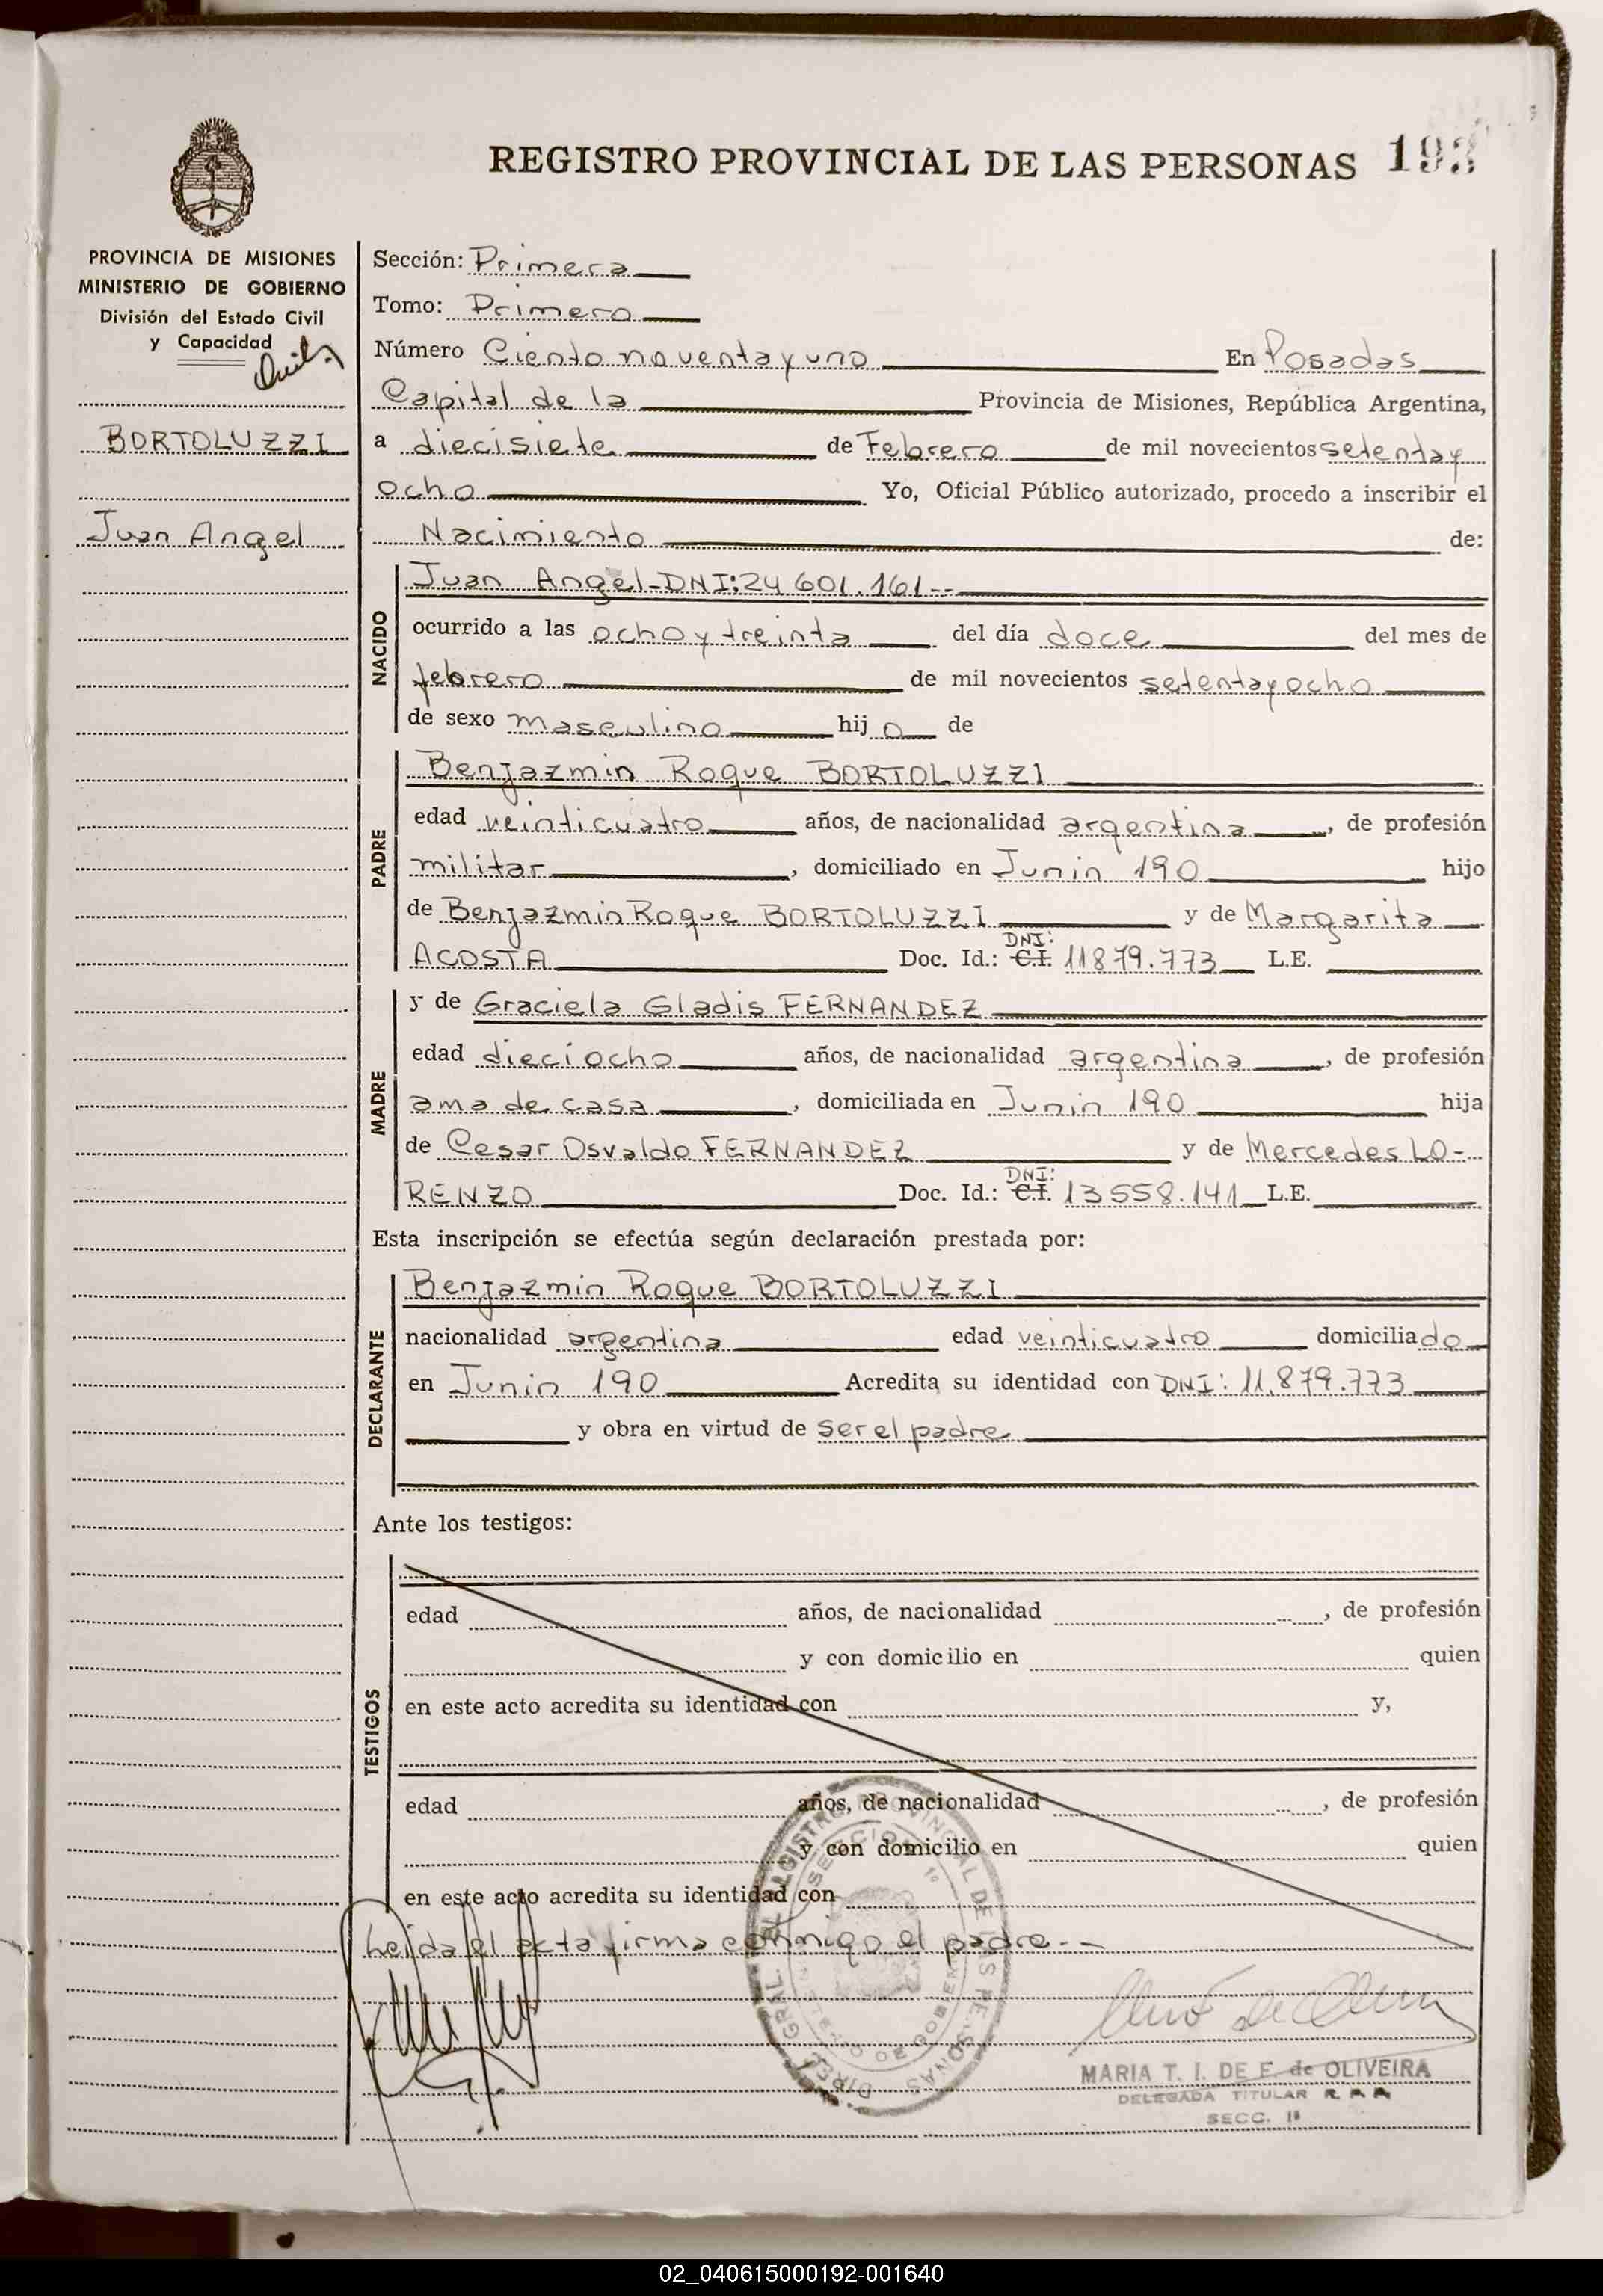 REGISTRO PROVINCIAL DE LAS PERSONAS 193
PROVINCIA DE MISIONES
MINISTERIO DE GOBIERNO
División del Estado Civil
y Capacidad
BORTOLUZZI
Juan Angel
Sección: Primera
Tomo: Primero
Número Ciento noventa y uno En Posadas
Capital de la Provincia de Misiones, República Argentina,
a diecisiete de Febrero de mil novecientos setenta y
ocho Yo, Oficial Público autorizado, procedo a inscribir el
Nacimiento de:
NACIDO
Juan Angel-DNI:24 601.161--
ocurrido a las ocho y treinta del día doce del mes de
febrero de mil novecientos setenta y ocho
de sexo masculino hij o de
PADRE
Benjazmin Roque BORTOLUZZI
edad veinticuatro años, de nacionalidad argentina, de profesión
militar, domiciliado en Junin 190 hijo
de Benjazmin Roque BORTOLUZZI y de Margarita
ACOSTA Doc. Id.: C.I. DNI: 11879.773 L.E.
MADRE
y de Graciela Gladis FERNANDEZ
edad dieciocho años, de nacionalidad argentina, de profesión
ama de casa, domiciliada en Junin 190 hija
de Cesar Osvaldo FERNANDEZ y de Mercedes LO-
RENZO Doc. Id.: C.I. DNI: 13558.141 L.E.
Esta inscripción se efectúa según declaración prestada por:
DECLARANTE
Benjazmin Roque BORTOLUZZI
nacionalidad argentina edad veinticuatro domiciliado
en Junin 190 Acredita su identidad con DNI: 11.879.773
y obra en virtud de ser el padre
Ante los testigos:
TESTIGOS
edad años, de nacionalidad, de profesión
y con domicilio en quien
en este acto acredita su identidad con y,
edad años, de nacionalidad, de profesión
y con domicilio en quien
en este acto acredita su identidad con
Leida el acta firma conmigo el padre.--
DIREC. GRAL. REGISTRO PROVINCIAL DE LAS PERSONAS
SECCION 1º
MINISTERIO DE GOBIERNO
MARIA T. I. DE F. de OLIVEIRA
DELEGADA TITULAR R. P. P.
SECC. 1ª
02_040615000192-001640